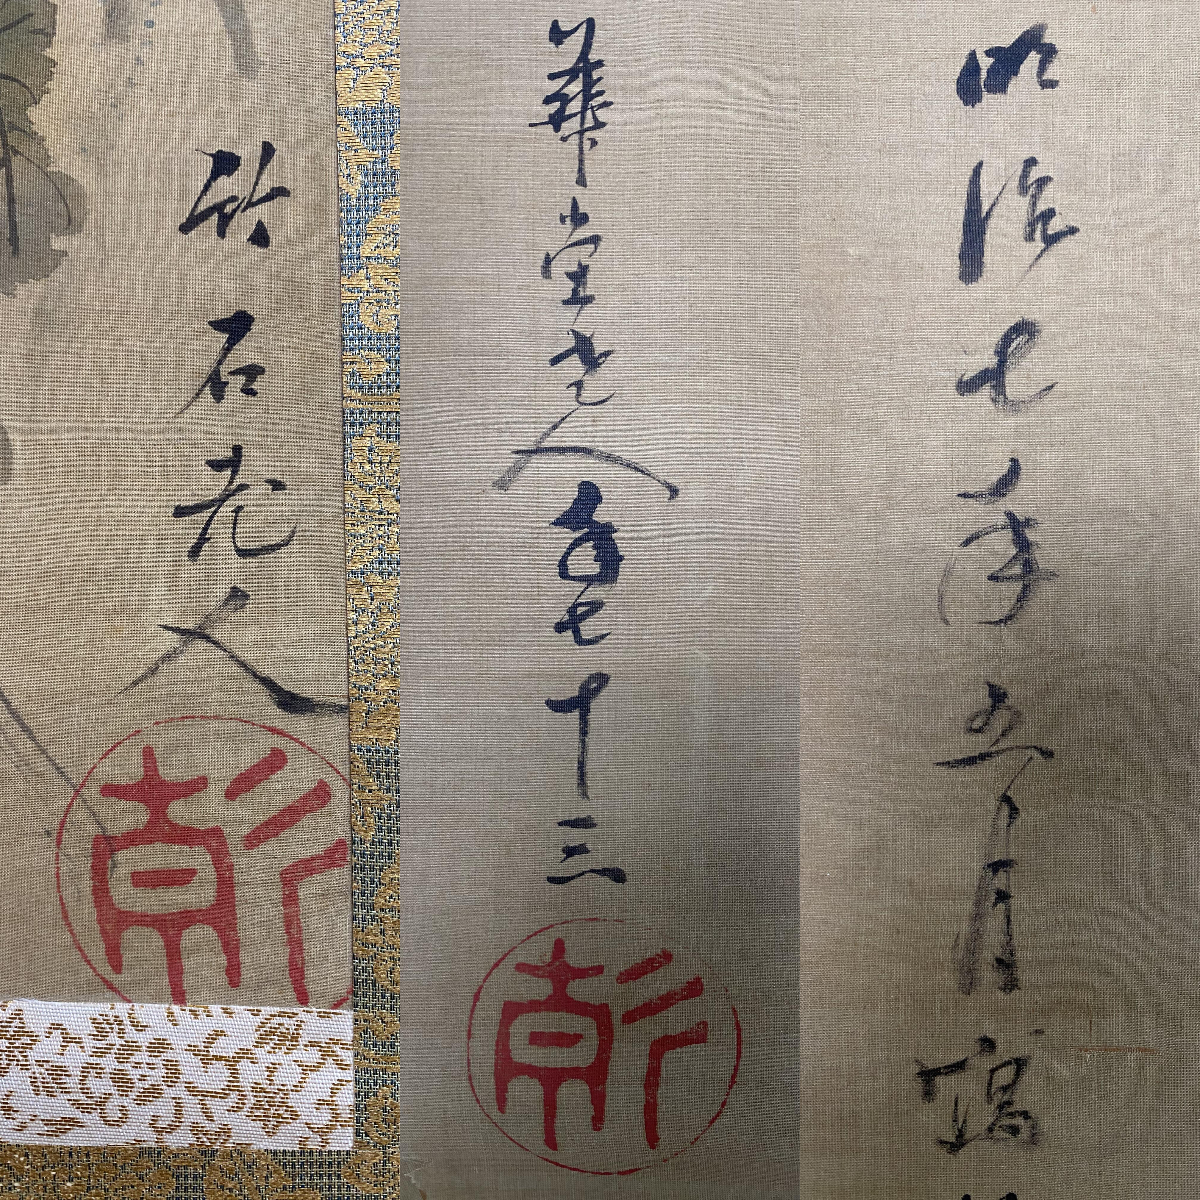 明治七年五月寫
華堂老人年七十三
竹石老人